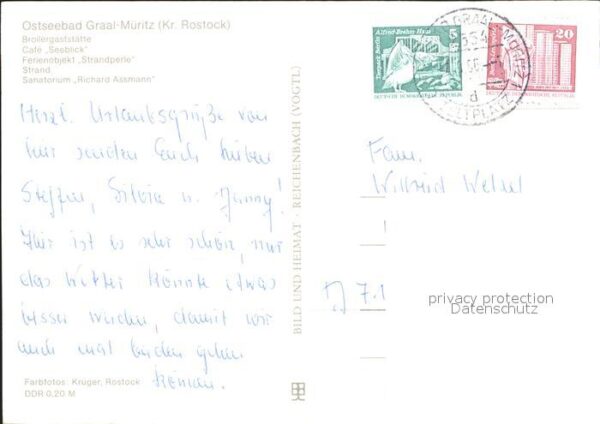 Ostseebad Graal-Müritz (Kr. Rostock)
Broilergaststätte
Cafe „Seeblick"
Ferienobjekt „Strandperle"
Strand
Sanatorium „Richard Assmann"
Herzl. Urlaubsgrüße von
hier senden Euch lieben
Steffen, Silvia u. Jenny!
Hier ist es sehr schön, nur
das Wetter könnte etwas
besser werden, damit wir
auch mal baden gehen
können.
Farbfotos: Kruger, Rostock
DDR 0,20 M
BILD UND HEIMAT · REICHENBACH (VOGTL)
Alfred-Brehm-Haus
Tierpark Berlin
5
DEUTSCHE DEMOKRATISCHE REPUBLIK
20
GRAAL-MÜRITZ 1
Fam.
Wilfried
7.1
privacy protection
Datenschutz